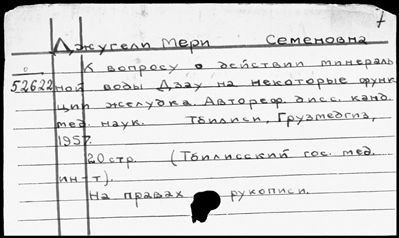 7
Джугели Мери Семеновна
К вопросу о действии минераль
52622 ной воды Дзау на некоторые функ
ции желудка. Автореф. дисс. канд.
мед. наук. Тбилиси, Грузмедгиз,
1957.
20 стр. (Тбилисский гос. мед.
ин-т).
На правах рукописи.